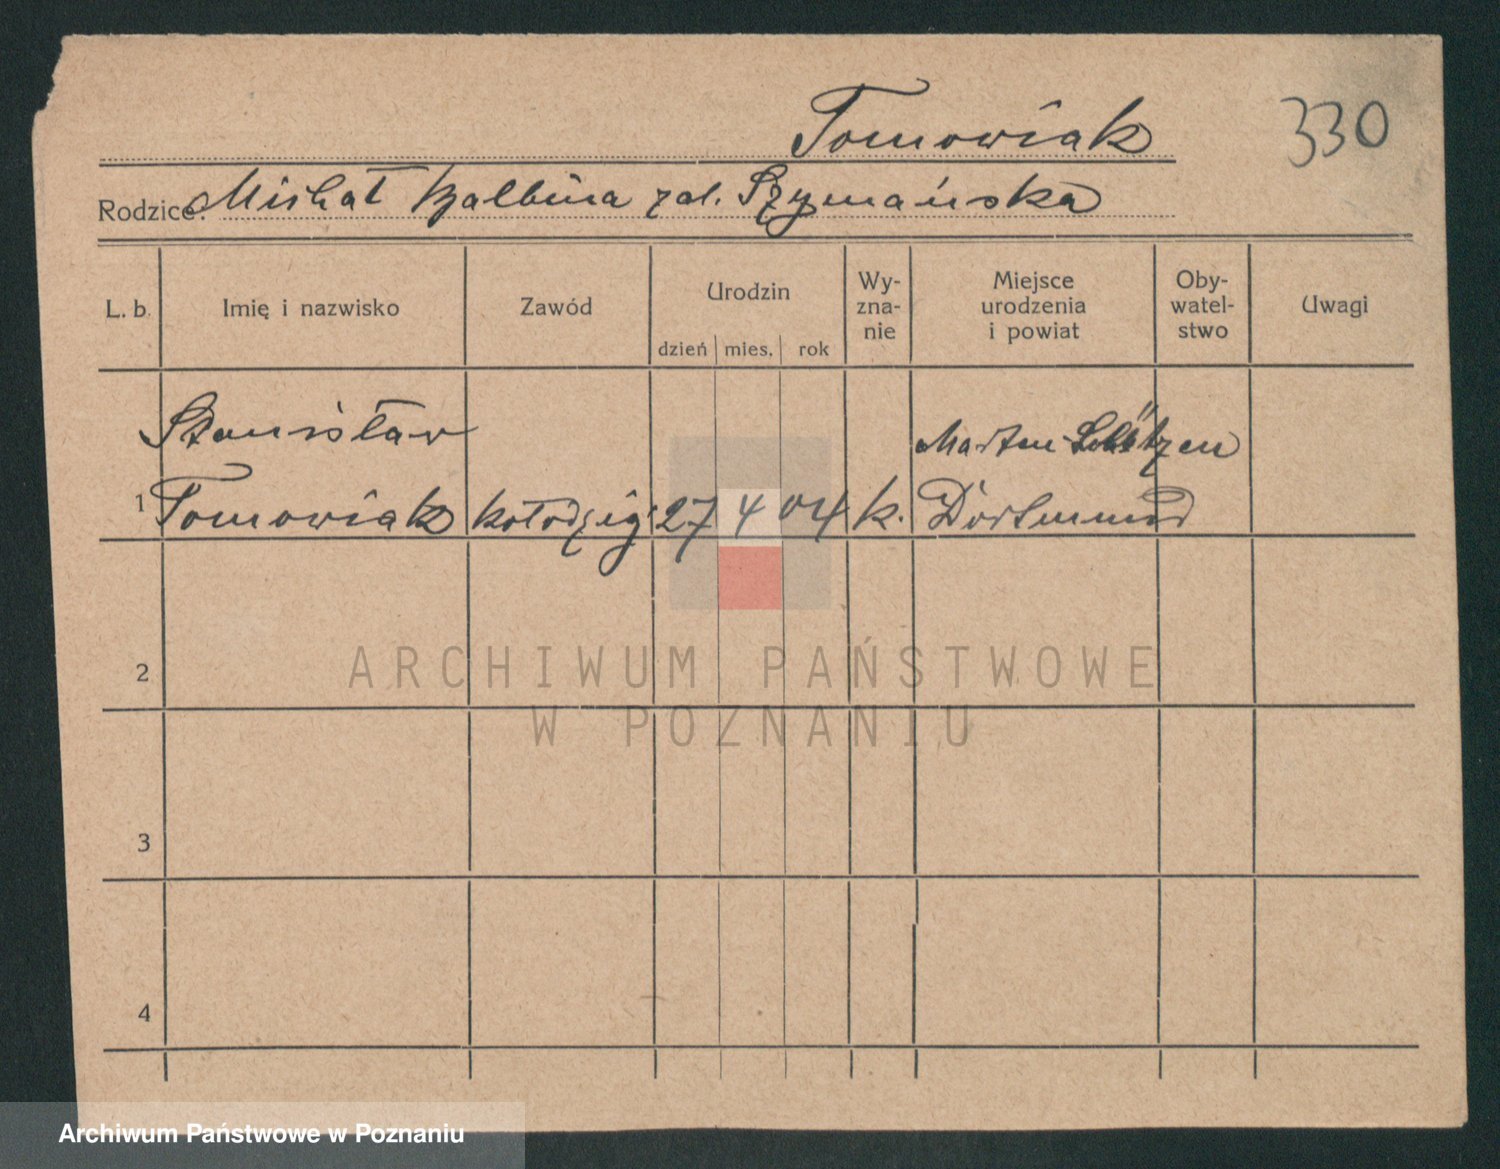 Tomowiak
330
Rodzice: Michał Balbina zd. Szymańska
L. b. Imię i nazwisko Zawód Urodzin dzień mies. rok Wy-zna-nie Miejsce urodzenia i powiat Oby-watel-stwo Uwagi
Stanisław Marten
1 Tomowiak kołodziej 27 4 04 k. Dortmund
2
ARCHIWUM PAŃSTWOWE
W POZNANIU
3
4
Archiwum Państwowe w Poznaniu